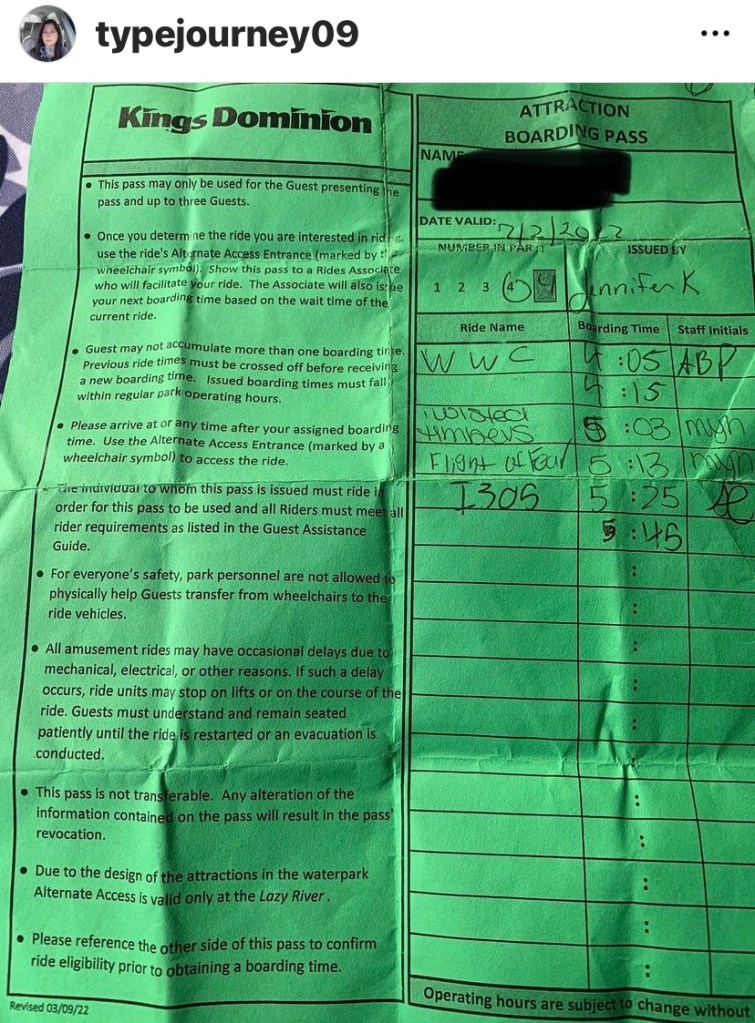 typejourney09
Kings Dominion
• This pass may only be used for the Guest presenting the
pass and up to three Guests.
• Once you determine the ride you are interested in riding,
use the ride's Alternate Access Entrance (marked by the
wheelchair symbol). Show this pass to a Rides Associate
who will facilitate your ride. The Associate will also issue
your next boarding time based on the wait time of the
current ride.
• Guest may not accumulate more than one boarding time.
Previous ride times must be crossed off before receiving
a new boarding time. Issued boarding times must fall
within regular park operating hours.
• Please arrive at or any time after your assigned boarding
time. Use the Alternate Access Entrance (marked by a
wheelchair symbol) to access the ride.
• The individual to whom this pass is issued must ride in
order for this pass to be used and all Riders must meet all
rider requirements as listed in the Guest Assistance
Guide.
• For everyone's safety, park personnel are not allowed to
physically help Guests transfer from wheelchairs to the
ride vehicles.
• All amusement rides may have occasional delays due to
mechanical, electrical, or other reasons. If such a delay
occurs, ride units may stop on lifts or on the course of the
ride. Guests must understand and remain seated
patiently until the ride is restarted or an evacuation is
conducted.
• This pass is not transferable. Any alteration of the
information contained on the pass will result in the pass'
revocation.
• Due to the design of the attractions in the waterpark
Alternate Access is valid only at the Lazy River.
• Please reference the other side of this pass to confirm
ride eligibility prior to obtaining a boarding time.
Revised 03/09/22
ATTRACTION
BOARDING PASS
NAME
DATE VALID:
NUMBER IN PARTY ISSUED BY
1 2 3 4 Jennifer K
Ride Name Boarding Time Staff Initials
WWC 4:05 ABP
4:15
Twisted
timbers 5:03 mgh
Flight of Fear 5:13 mgh
I305 5:25
5:45
Operating hours are subject to change without